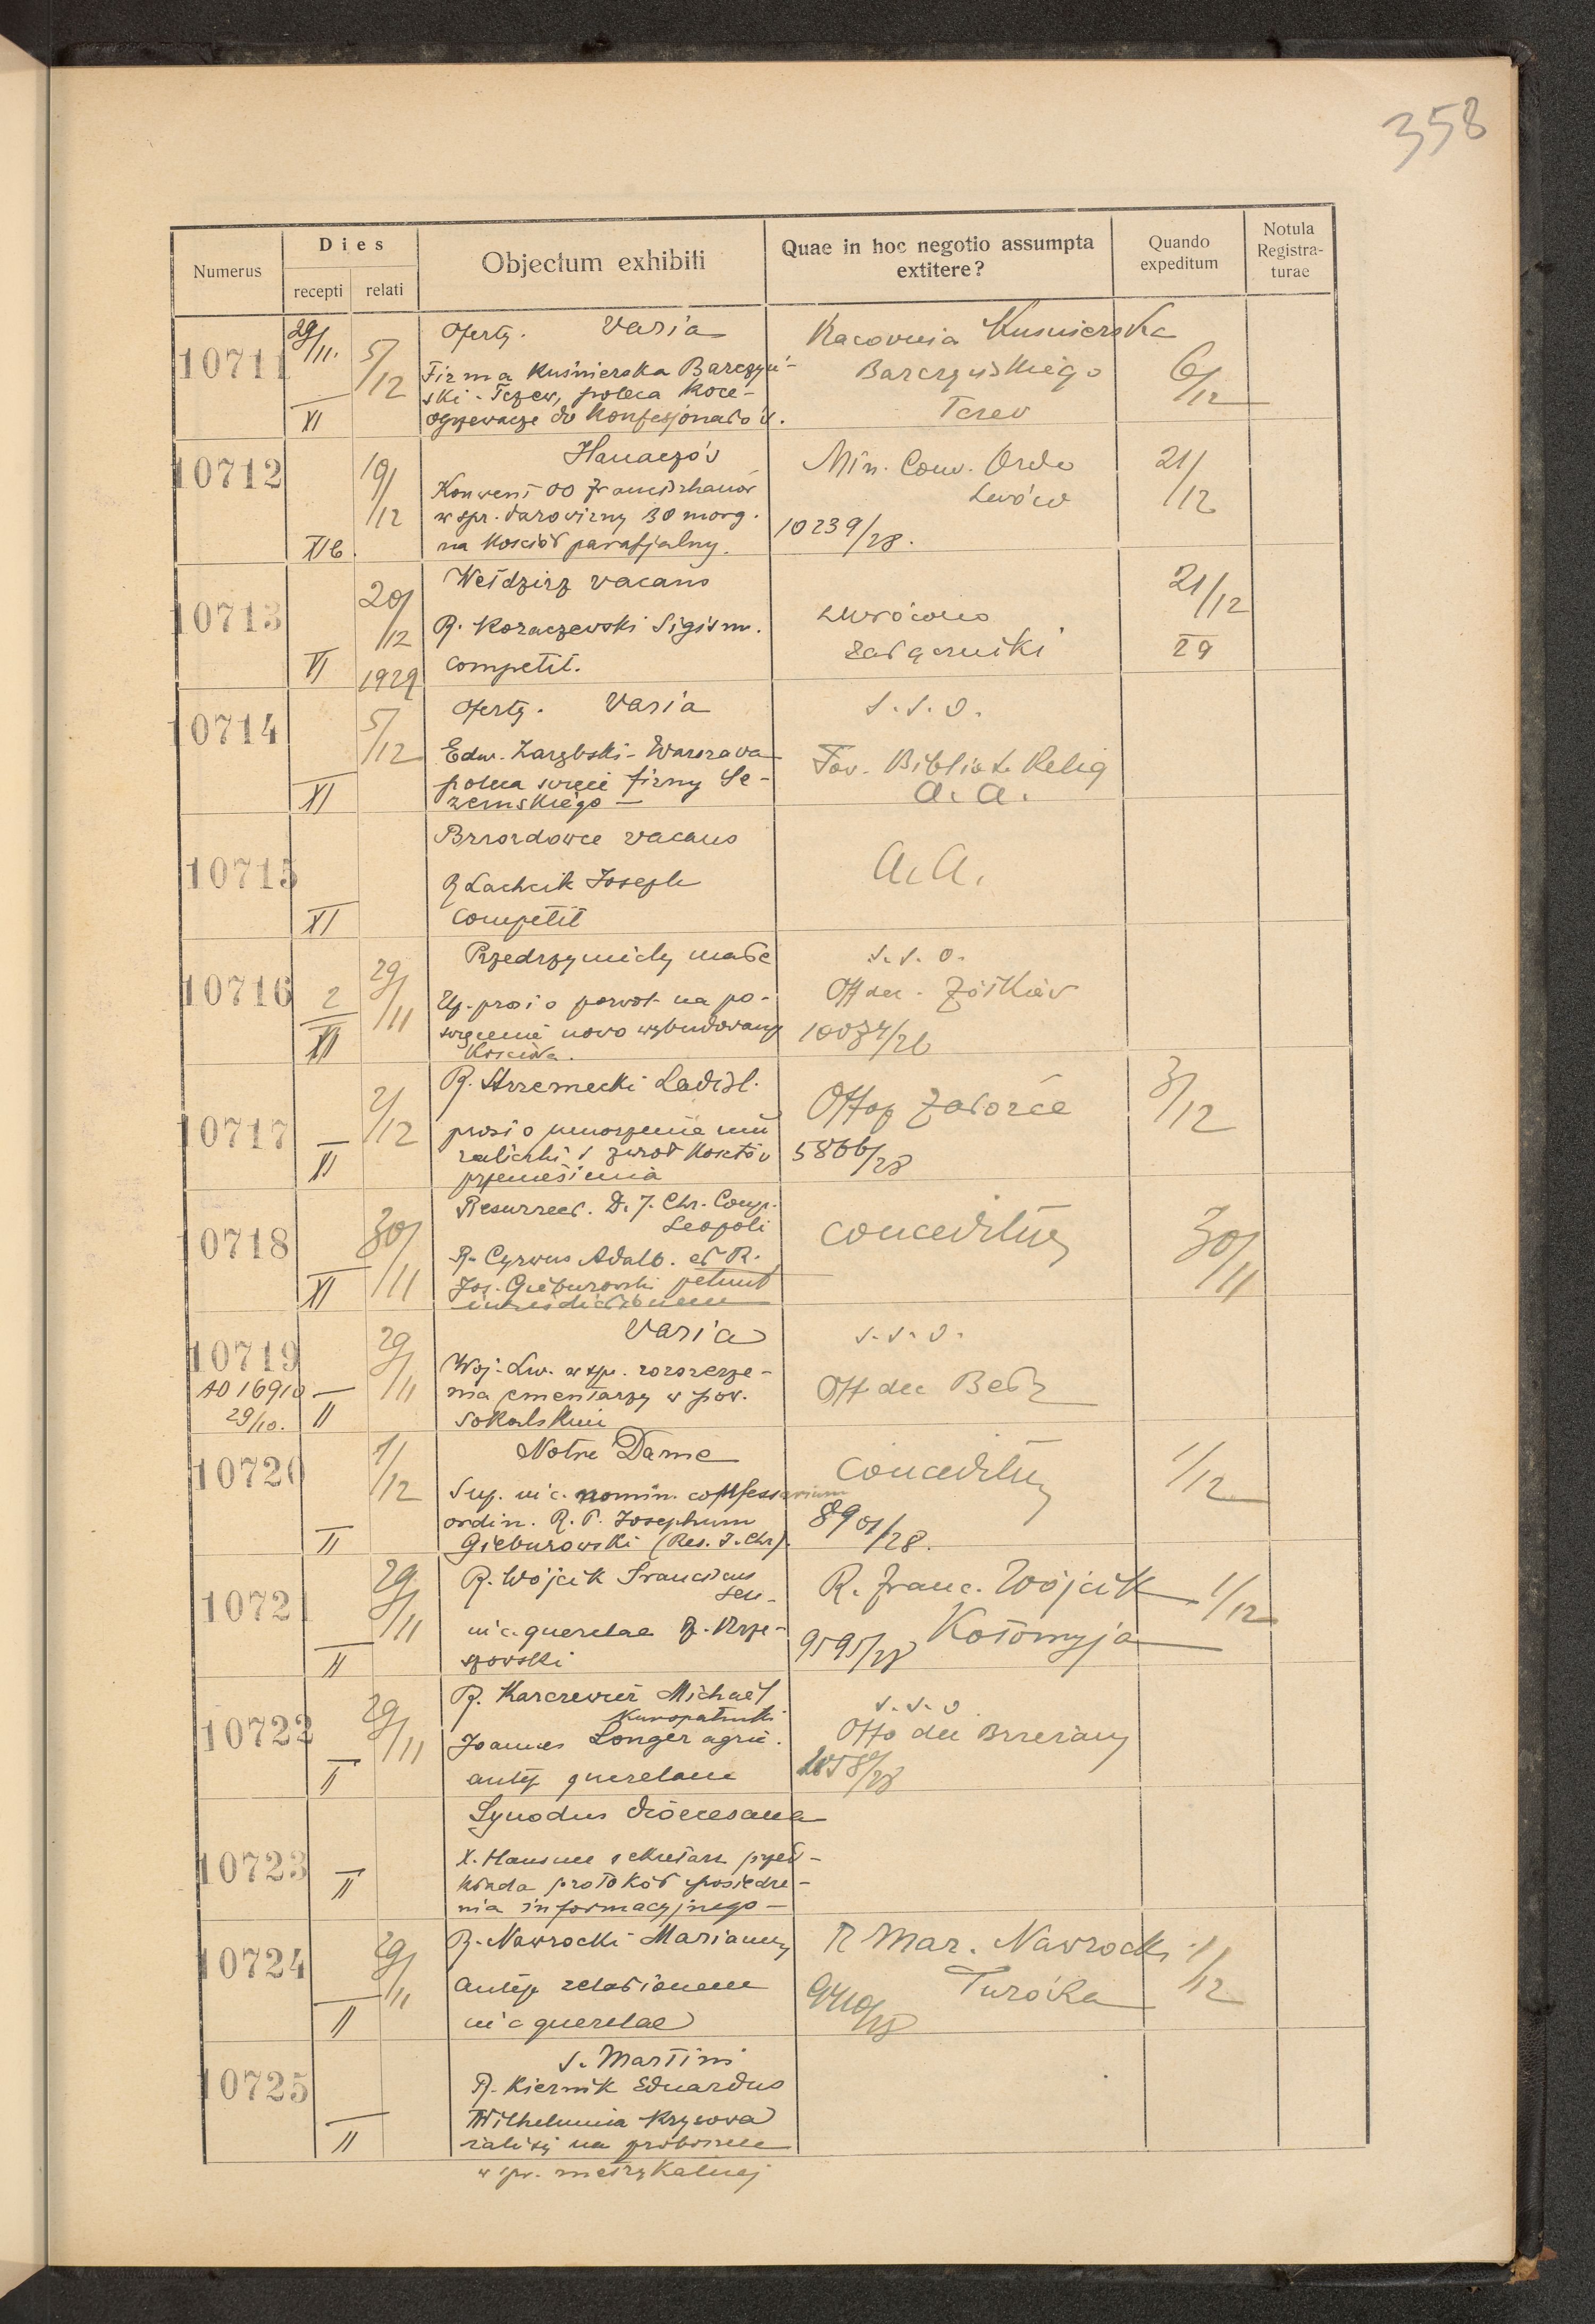 358
Numerus
Dies
recepti
relati
Objectum exhibiti
Quae in hoc negotio assumpta
extitere?
Quando
expeditum
Notula
Registra-
turae
10711
29/11.
XI
5/12
Oferty. Varia
Firma Kuśnierska Barczyń-
ski - Tczew, poleca Koce-
ogrzewacze do Konfesjonałów.
Pracownia Kuśnierska
Barczyńskiego
Tczew
6/12
10712
XIb.
19/12
Hanaczów
Konwent OO Franciszkanów
w spr. darowizny 30 morg.
na Kościół parafjalny.
Min. Conv. Ordo
Lwów
10239/28.
21/12
10713
VI
20/12
1929
Wełdzirz vacans
R. Koraczewski Sigism.
competit.
zwrócono
załączniki
21/12
29
10714
XI
5/12
Oferty. Varia
Edw. Zarębski - Warszawa
poleca świece firmy Se-
zemskiego —
s. s. o.
Tow. Bibliot. Relig
a. a.
10715
XI
Brzozdowce vacans
R Lachcik Joseph
competit
a. a.
10716
2
XII
29/11
Przedrzymichy małe
Up. prosi o pozwol. na po-
święcenie nowo wybudowang
Kościoła.
s. s. o.
Off dec. Żółkiew
10034/26
10717
II
2/12
R. Strzemecki Ladisl.
prosi o umorzenie mu
zaliczki i zwrot Kosztów
przeniesienia
Off op Załoźce
5866/28
3/12
10718
XI
30/11
Resurrect. D. J. Chr. Congr.
Leopoli
R. Cyrwus Adalb. et R.
Jos. Gieburowski petunt
iurisdictionem
conceditur
30/11
10719
AD 16910
29/10.
II
29/11
Varia
Woj. Lw. w spr. rozszerze-
nia cmentarzy w pow.
Sokalskim
s. s. o.
Off dec Bełz
10720
II
1/12
Notre Dame
Sup. in c. nomin. confessarium
ordin. R. P. Josephum
Gieburowski (Res. J. Chr).
conceditur
8901/28.
1/12
10721
II
29/11
R. Wójcik Franciscus
sen.
in c. querelae R. Krze-
szowski
R. Franc. Wójcik
Kołomyja
9595/28
1/12
10722
II
29/11
R. Karczewicz Michael
Kuropatniki
Joannes Longer agric.
antep querelam
s. s. o
Offo dec Brzeżany
10722
10723
II
Synodus dioecesana
X. Hausner sekretarz przed-
kłada protokół posiedze-
nia informacyjnego —
10724
II
29/11
R. Nawrocki Marianus
antep relationem
in c querelae
R Mar. Nawrocki
Turówka
9410/28
1/12
10725
II
S. Martini
R. Kiernik Eduardus
Wilhelmina Krysowa
żali się na proboszcza
w spr. metrykalnej